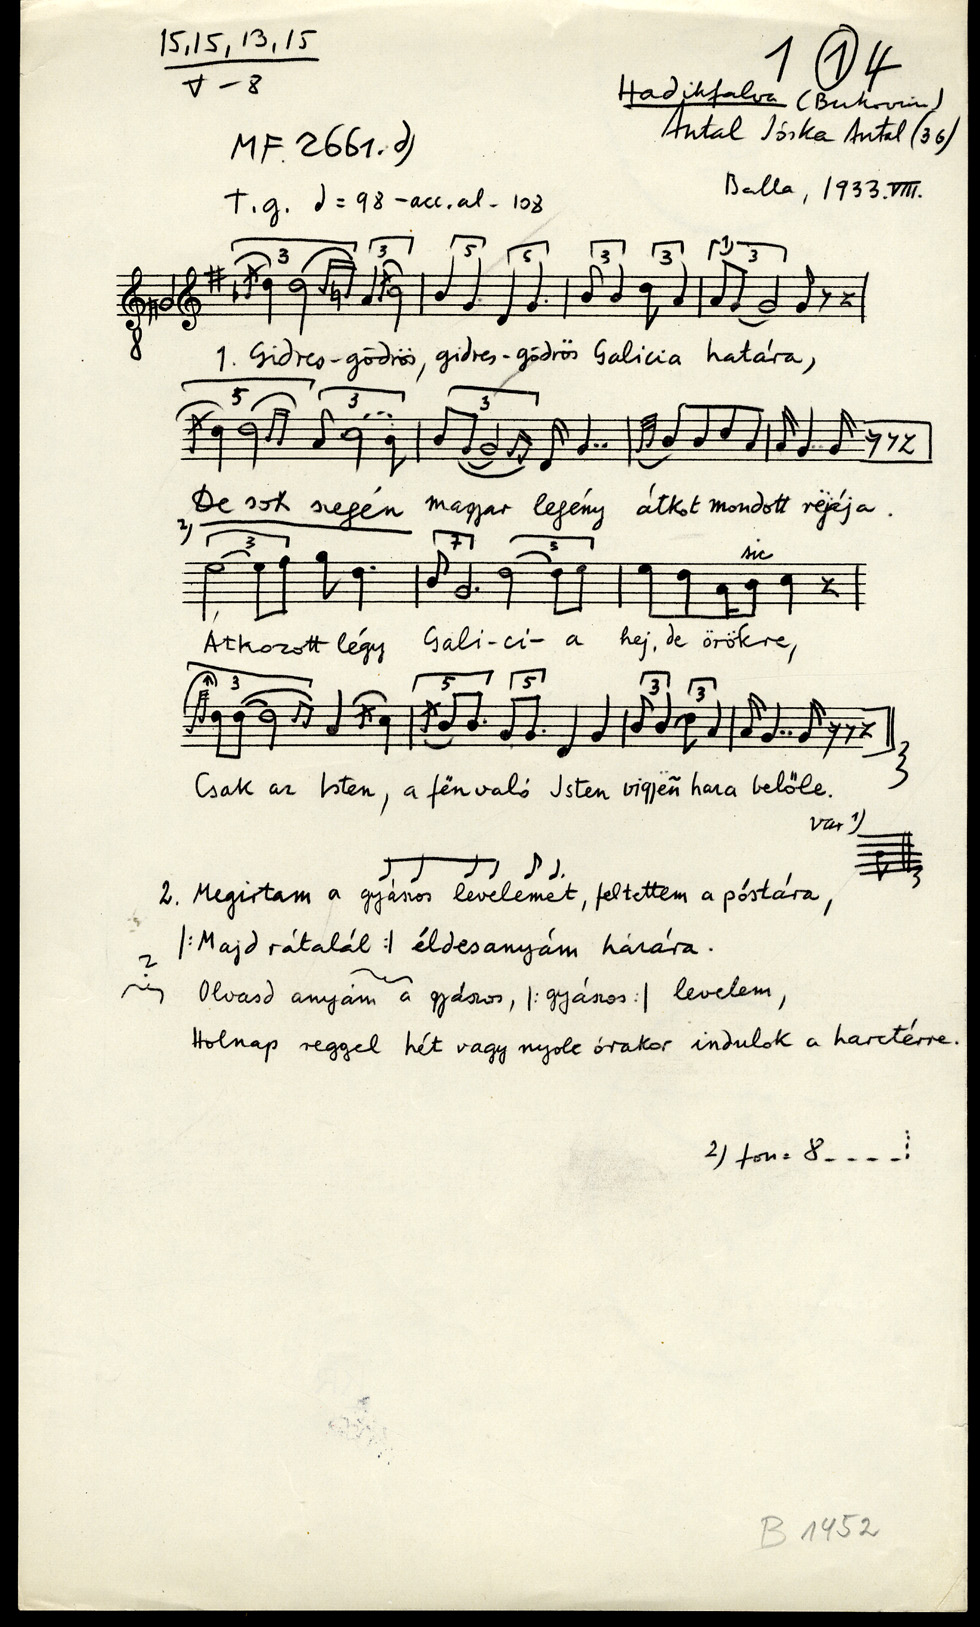 15,15,13,15
V – 8
1 ① 4
Hadikfalva (Bukovina)
MF. 2661. d)
Antal Jóska Antal (36)
Balla, 1933. VIII.
T.g. = 98 – acc. al – 108
3 3 5 5 3 3 1) 3
8
1. Gidres-gödrös, gidres-gödrös Galicia határa,
5 3 3
De sok szegén magyar legény átkot mondott réjája.
2) 3 7 3
sic
Átkozott légy Gali-ci-a hej, de örökre,
3 5 5 3 3
Csak az Isten, a fënvaló Isten vigyën haza belőle.
var 1)
2. Megirtam a gyászos levelemet, feltettem a póstára,
|: Majd rátalál :| éldesanyám házára.
2
Olvasd anyám a gyászos, |: gyászos :| levelem,
Holnap reggel hét vagy nyolc órakor indulok a harctérre.
2) fon = 8
B 1452